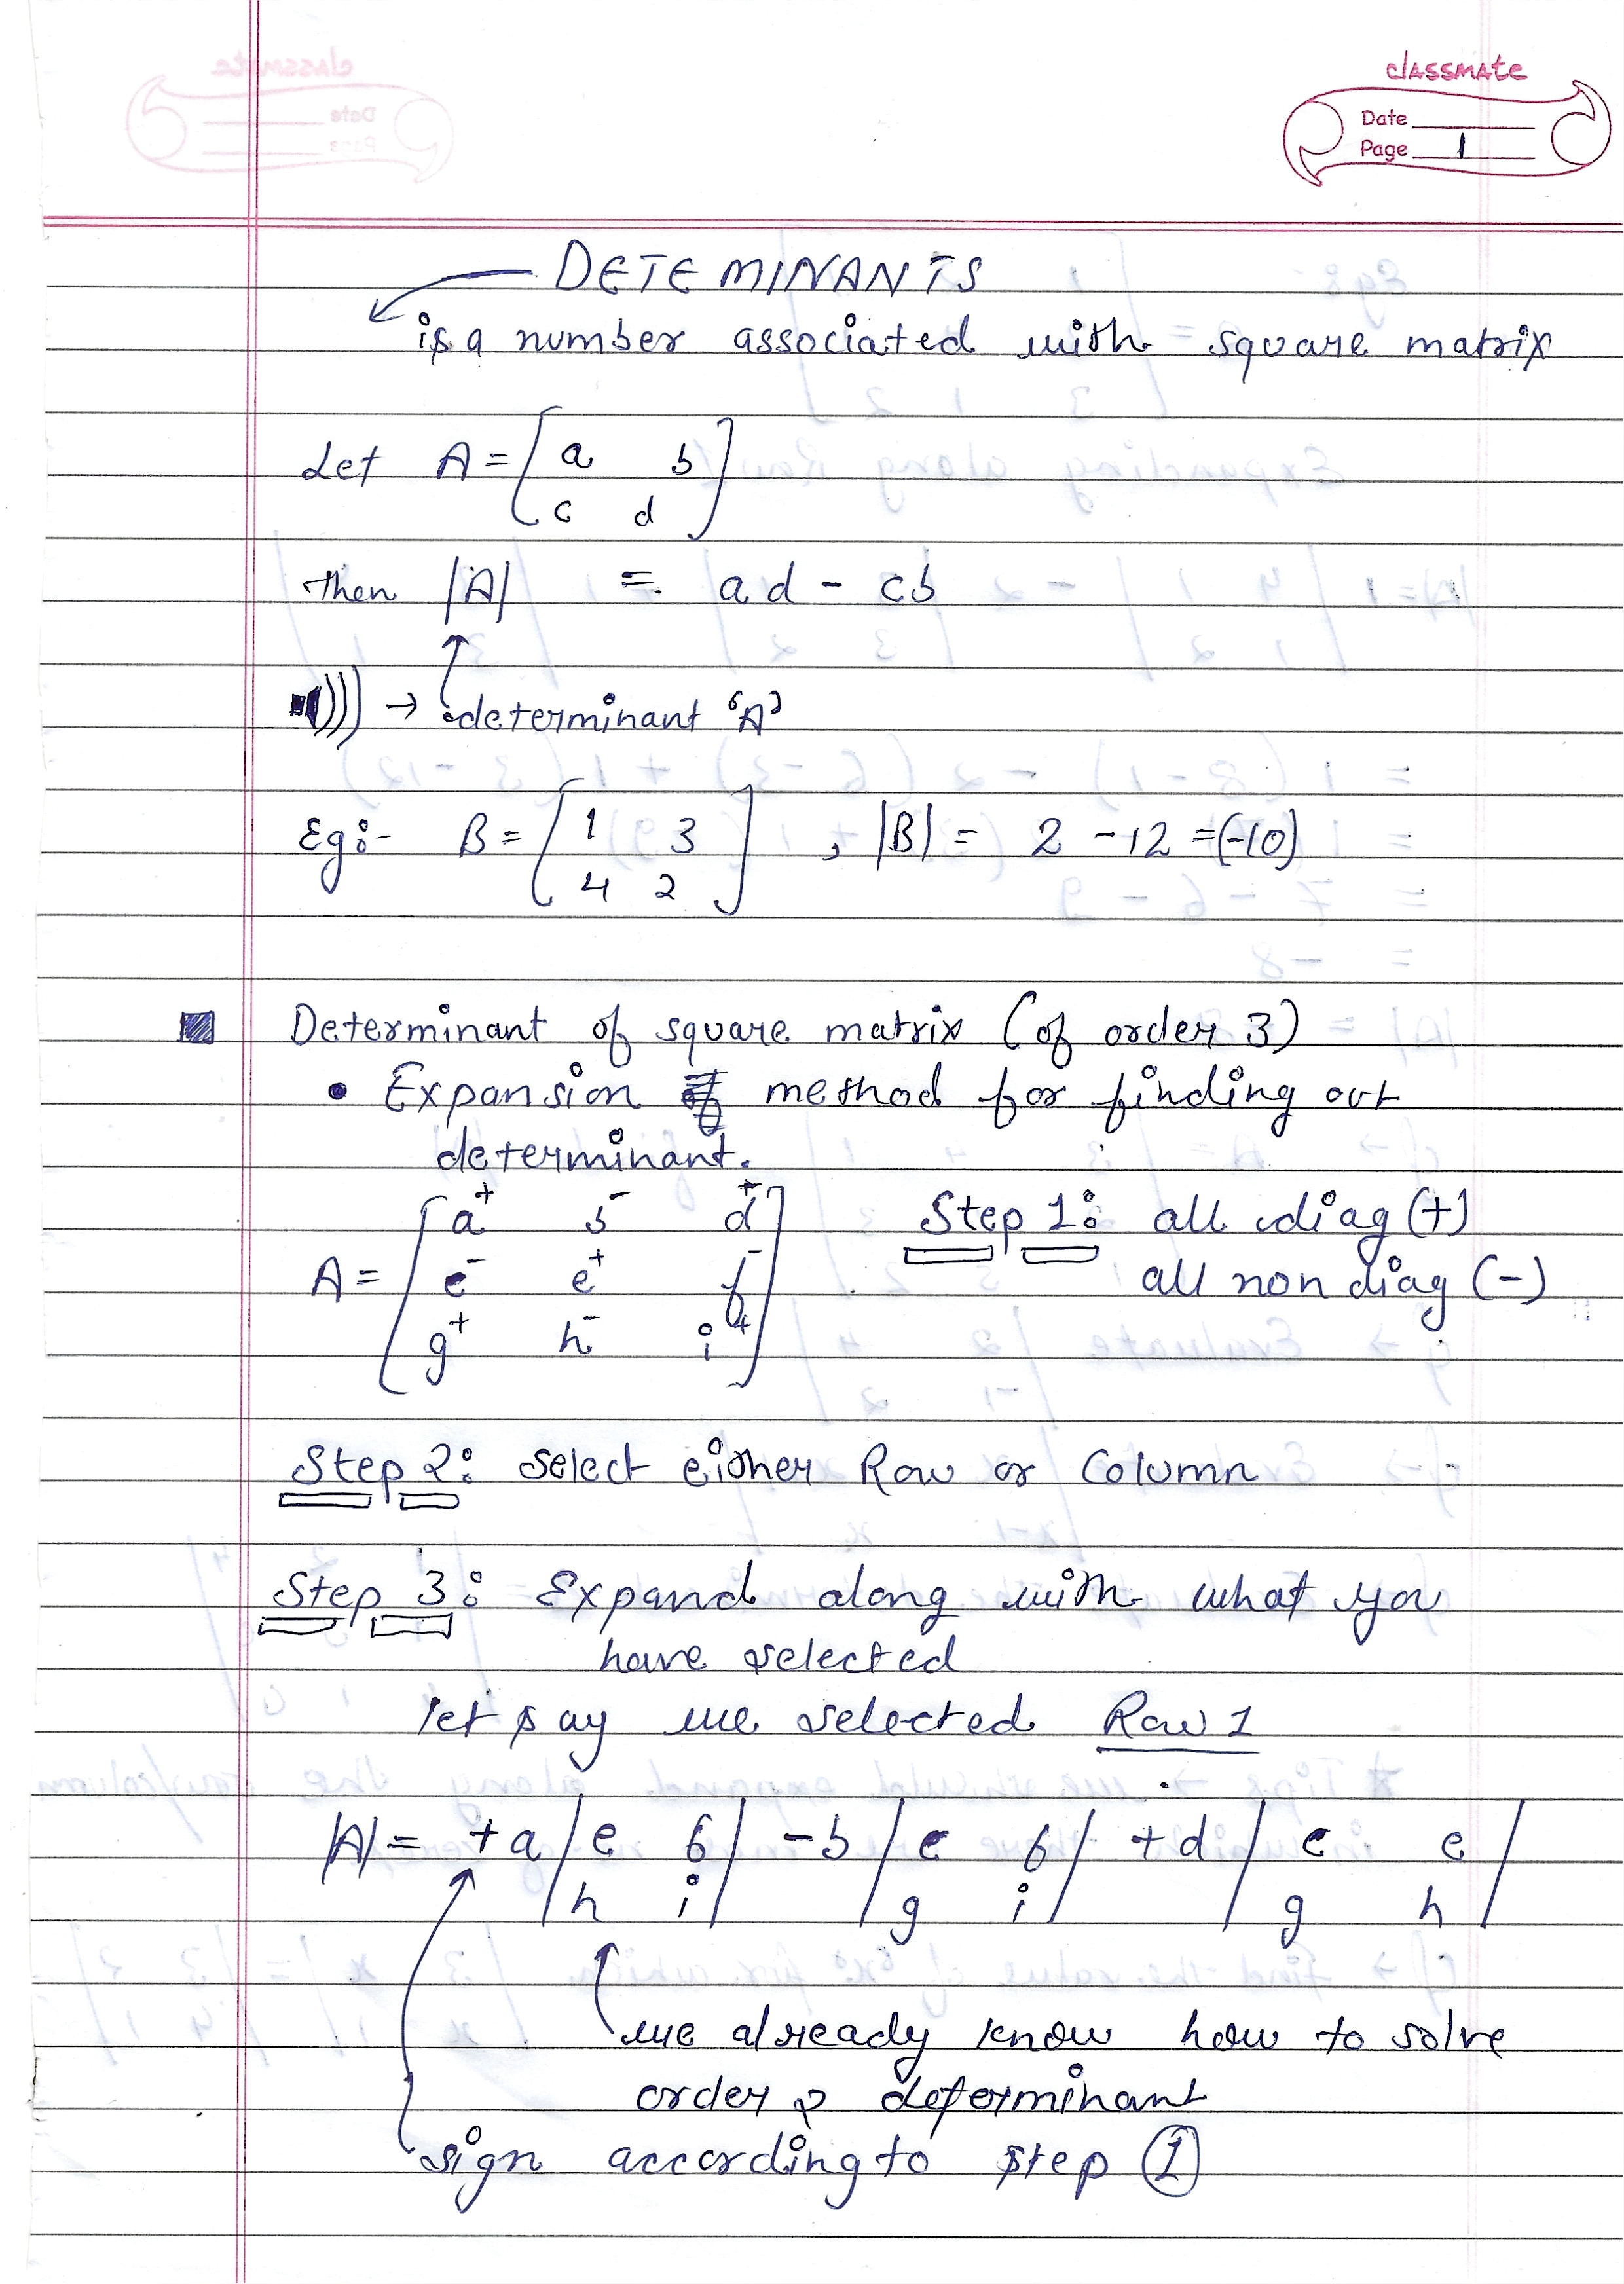 classmate
Date
Page 1
DETEMINANTS
is a number associated with square matrix
Let A = [ a b
c d ]
Then |A| = ad - cb
→ determinant 'A'
Eg:- B = [ 1 3 , |B| = 2 - 12 = (-10)
4 2 ]
Determinant of square matrix (of order 3)
• Expansion method for finding out
determinant.
A = [ a⁺ b⁻ d⁺ Step 1: all diag (+)
c⁻ e⁺ f⁻ all non diag (-)
g⁺ h⁻ i⁺ ]
Step 2: Select either Row or Column
Step 3: Expand along with what you
have selected
let say we selected Row 1
|A| = +a | e f | -b | c f | +d | c e |
h i g i g h
we already know how to solve
order 2 determinant
sign according to step ①